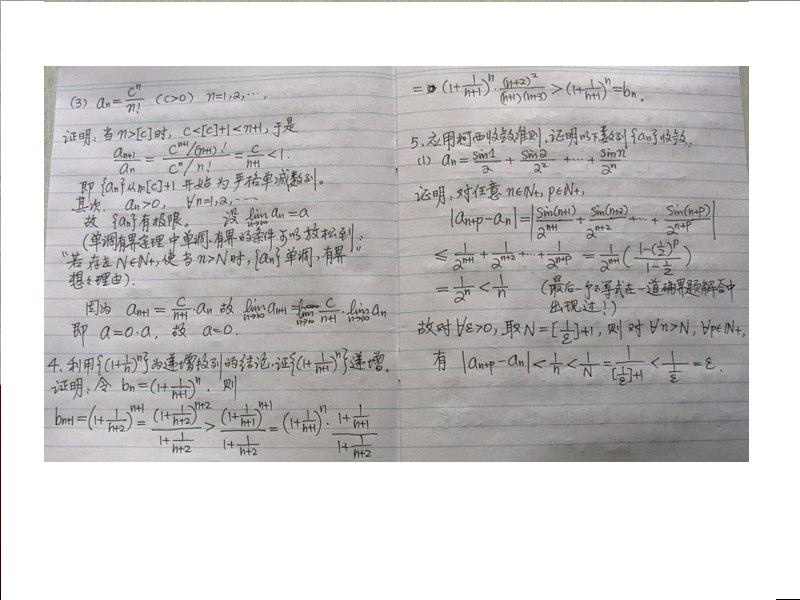 (3) aₙ = cⁿ/n! (c>0) n=1,2,…,
证明：当n>[c]时, c<[c]+1<n+1, 于是
aₙ₊₁/aₙ = (cⁿ⁺¹/(n+1)!)/(cⁿ/n!) = c/(n+1) < 1.
即{aₙ}从n=[c]+1开始为严格单减数列。
其次, aₙ>0, ∀n=1,2,…
故{aₙ}有极限。 设 lim_{n→∞} aₙ = a
(单调有界定理中单调有界的条件可以放松到：
"若存在N∈N₊, 使当n>N时, {aₙ}单调, 有界"
想想理由).
因为 aₙ₊₁ = c/(n+1)·aₙ 故 lim_{n→∞} aₙ₊₁ = lim_{n→∞} c/(n+1) · lim_{n→∞} aₙ
即 a=0·a, 故 a=0.
4、利用{(1+1/n)ⁿ}为递增数列的结论, 证{(1+1/(n+1))ⁿ}递增.
证明：令 bₙ = (1+1/(n+1))ⁿ, 则
bₙ₊₁ = (1+1/(n+2))ⁿ⁺¹ = (1+1/(n+2))ⁿ⁺²/(1+1/(n+2)) > (1+1/(n+1))ⁿ⁺¹/(1+1/(n+2)) = (1+1/(n+1))ⁿ · (1+1/(n+1))/(1+1/(n+2))
= (1+1/(n+1))ⁿ · (n+2)²/((n+1)(n+3)) > (1+1/(n+1))ⁿ = bₙ.
5、应用柯西收敛准则, 证明以下数列{aₙ}收敛.
(1) aₙ = sin1/2 + sin2/2² + … + sin n/2ⁿ
证明, 对任意 n∈N₊, p∈N₊,
|aₙ₊ₚ-aₙ| = |sin(n+1)/2ⁿ⁺¹ + sin(n+2)/2ⁿ⁺² + … + sin(n+p)/2ⁿ⁺ᵖ|
≤ 1/2ⁿ⁺¹ + 1/2ⁿ⁺² + … + 1/2ⁿ⁺ᵖ = 1/2ⁿ⁺¹ ((1-(1/2)ᵖ)/(1-1/2))
= 1/2ⁿ < 1/n (最后一个不等式在一道确界题解答中
出现过!)
故对∀ε>0, 取N=[1/ε]+1, 则对∀n>N, ∀p∈N₊,
有 |aₙ₊ₚ-aₙ| < 1/n < 1/N = 1/([1/ε]+1) < 1/(1/ε) = ε.